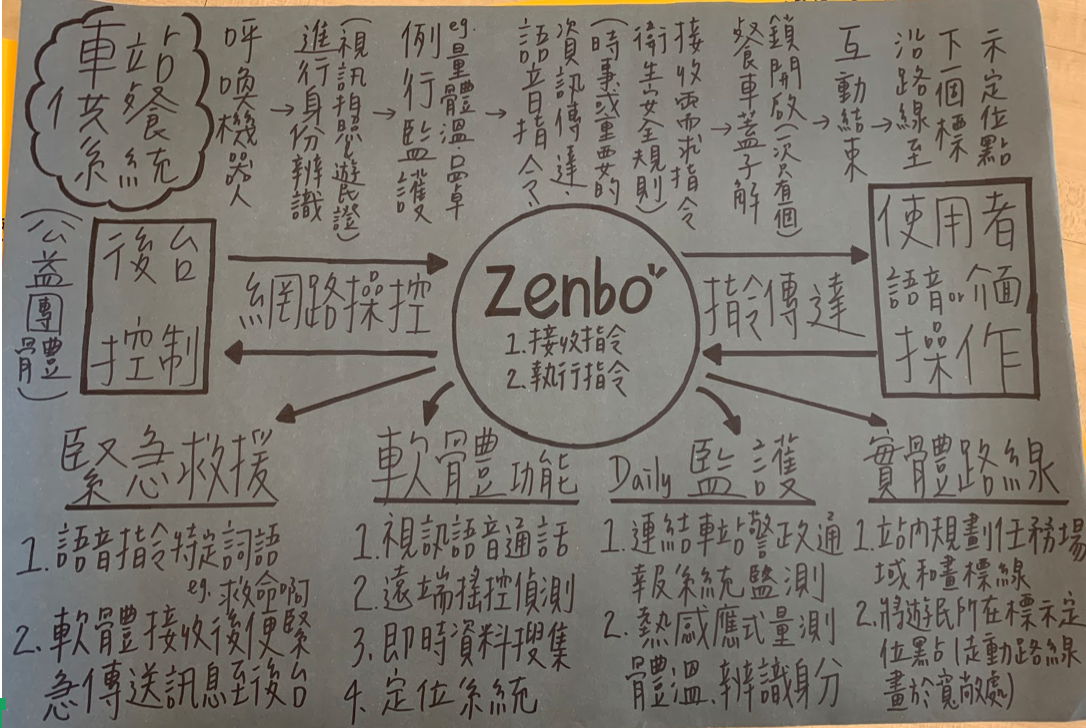 車站
供餐
系統
呼喚機器人
→進行身份辨識
(視訊拍照(遊民證)
→例行監護
eg.量體溫.口罩
→語音指令、
資訊傳達、
(時事或重要的
衛生安全規則)
接收需求指令
→餐車蓋子解
鎖開啟(一次只有一個)
→互動結束
→沿路線至
下個標
示定位點
(公益團體)
後台
控制
網路操控
Zenbo
1.接收指令
2.執行指令
指令傳達
使用者
語音or介面
操作
緊急救援
1.語音指令特定詞語
eg.救命啊
2.軟體接收後便緊
急傳送訊息至後台
軟體功能
1.視訊語音通話
2.遠端搖控偵測
3.即時資料搜集
4.定位系統
Daily監護
1.連結車站警政通
報系統監測
2.熱感應式量測
體溫、辨識身分
實體路線
1.站內規劃任務場
域和畫標線
2.將遊民所在標示定
位點(走動路線
畫於寬敞處)